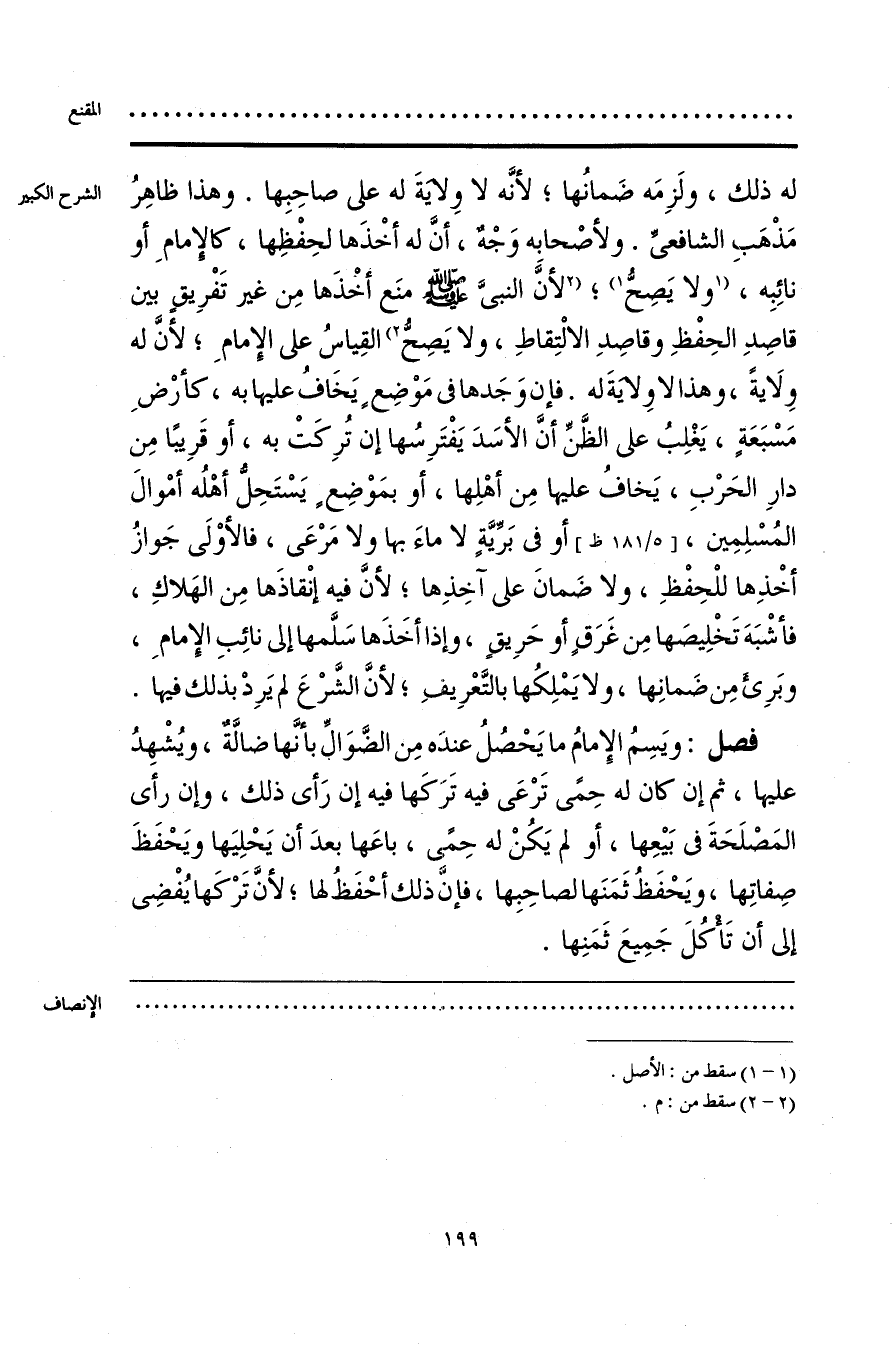 المقنع ........................................................
الشرح الكبير
له ذلك ، ولَزِمَه ضَمانُها ؛ لأنَّه لا وِلايَةَ له على صاحِبِها . وهذا ظاهِرُ
مَذْهَبِ الشافعىِّ . ولأصْحابِه وَجْهٌ ، أنَّ له أخْذَها لحِفْظِها ، كالإِمامِ أو
نائِبِه ، (١ولا يَصِحُّ١) ؛ (٢لأنَّ النبىَّ ﷺ منَع أخْذَها مِن غيرِ تَفْرِيقٍ بين
قاصِدِ الحِفْظِ وقاصِدِ الالْتِقاطِ ، ولا يَصِحُّ٢) القِياسُ على الإِمامِ ؛ لأنَّ له
وِلايةً ، وهذا لا وِلايَةَ له . فإن وَجَدها فى مَوْضِعٍ يَخَافُ عليها به ، كأرْضٍ
مَسْبَعَةٍ ، يَغْلِبُ على الظَّنِّ أنَّ الأسَدَ يَفْتَرِسُها إن تُرِكَتْ به ، أو قَرِيبًا مِن
دارِ الحَرْبِ ، يَخافُ عليها مِن أهْلِها ، أو بمَوْضِعٍ يَسْتَحِلُّ أهْلُه أمْوالَ
المُسْلِمِين ، [ ١٨١/٥ ظ ] أو فى بَرِّيَّةٍ لا ماءَ بها ولا مَرْعَى ، فالأوْلَى جَوازُ
أخْذِها للْحِفْظِ ، ولا ضَمانَ على آخِذِها ؛ لأنَّ فيه إنْقاذَها مِن الهَلاكِ ،
فأشْبَهَ تَخْلِيصَها مِن غَرَقٍ أو حَرِيقٍ ، وإذا أخَذَها سَلَّمها إلى نائِبِ الإِمامِ ،
وبَرِئَ مِن ضَمانِها ، ولا يَمْلِكُها بالتَّعْرِيفِ ؛ لأنَّ الشَّرْعَ لم يَرِدْ بذلك فيها .
فصل : ويَسِمُ الإِمامُ ما يَحْصُلُ عندَه مِن الضَّوَالِّ بأنَّها ضالَّةٌ ، ويُشْهِدُ
عليها ، ثم إن كان له حِمًى تَرْعَى فيه تَرَكَها فيه إن رَأى ذلك ، وإن رأى
المَصْلَحَةَ فى بَيْعِها ، أو لم يَكُنْ له حِمًى ، باعَها بعدَ أن يَحْلِيَها ويَحْفَظَ
صِفاتِها ، ويَحْفَظُ ثَمَنَها لصاحِبِها ، فإنَّ ذلك أحْفَظُ لها ؛ لأنَّ تَرْكَها يُفْضِى
إلى أن تَأْكُلَ جَمِيعَ ثَمَنِها .
الإنصاف ........................................................
(١ - ١) سقط من : الأصل .
(٢ - ٢) سقط من : م .
١٩٩